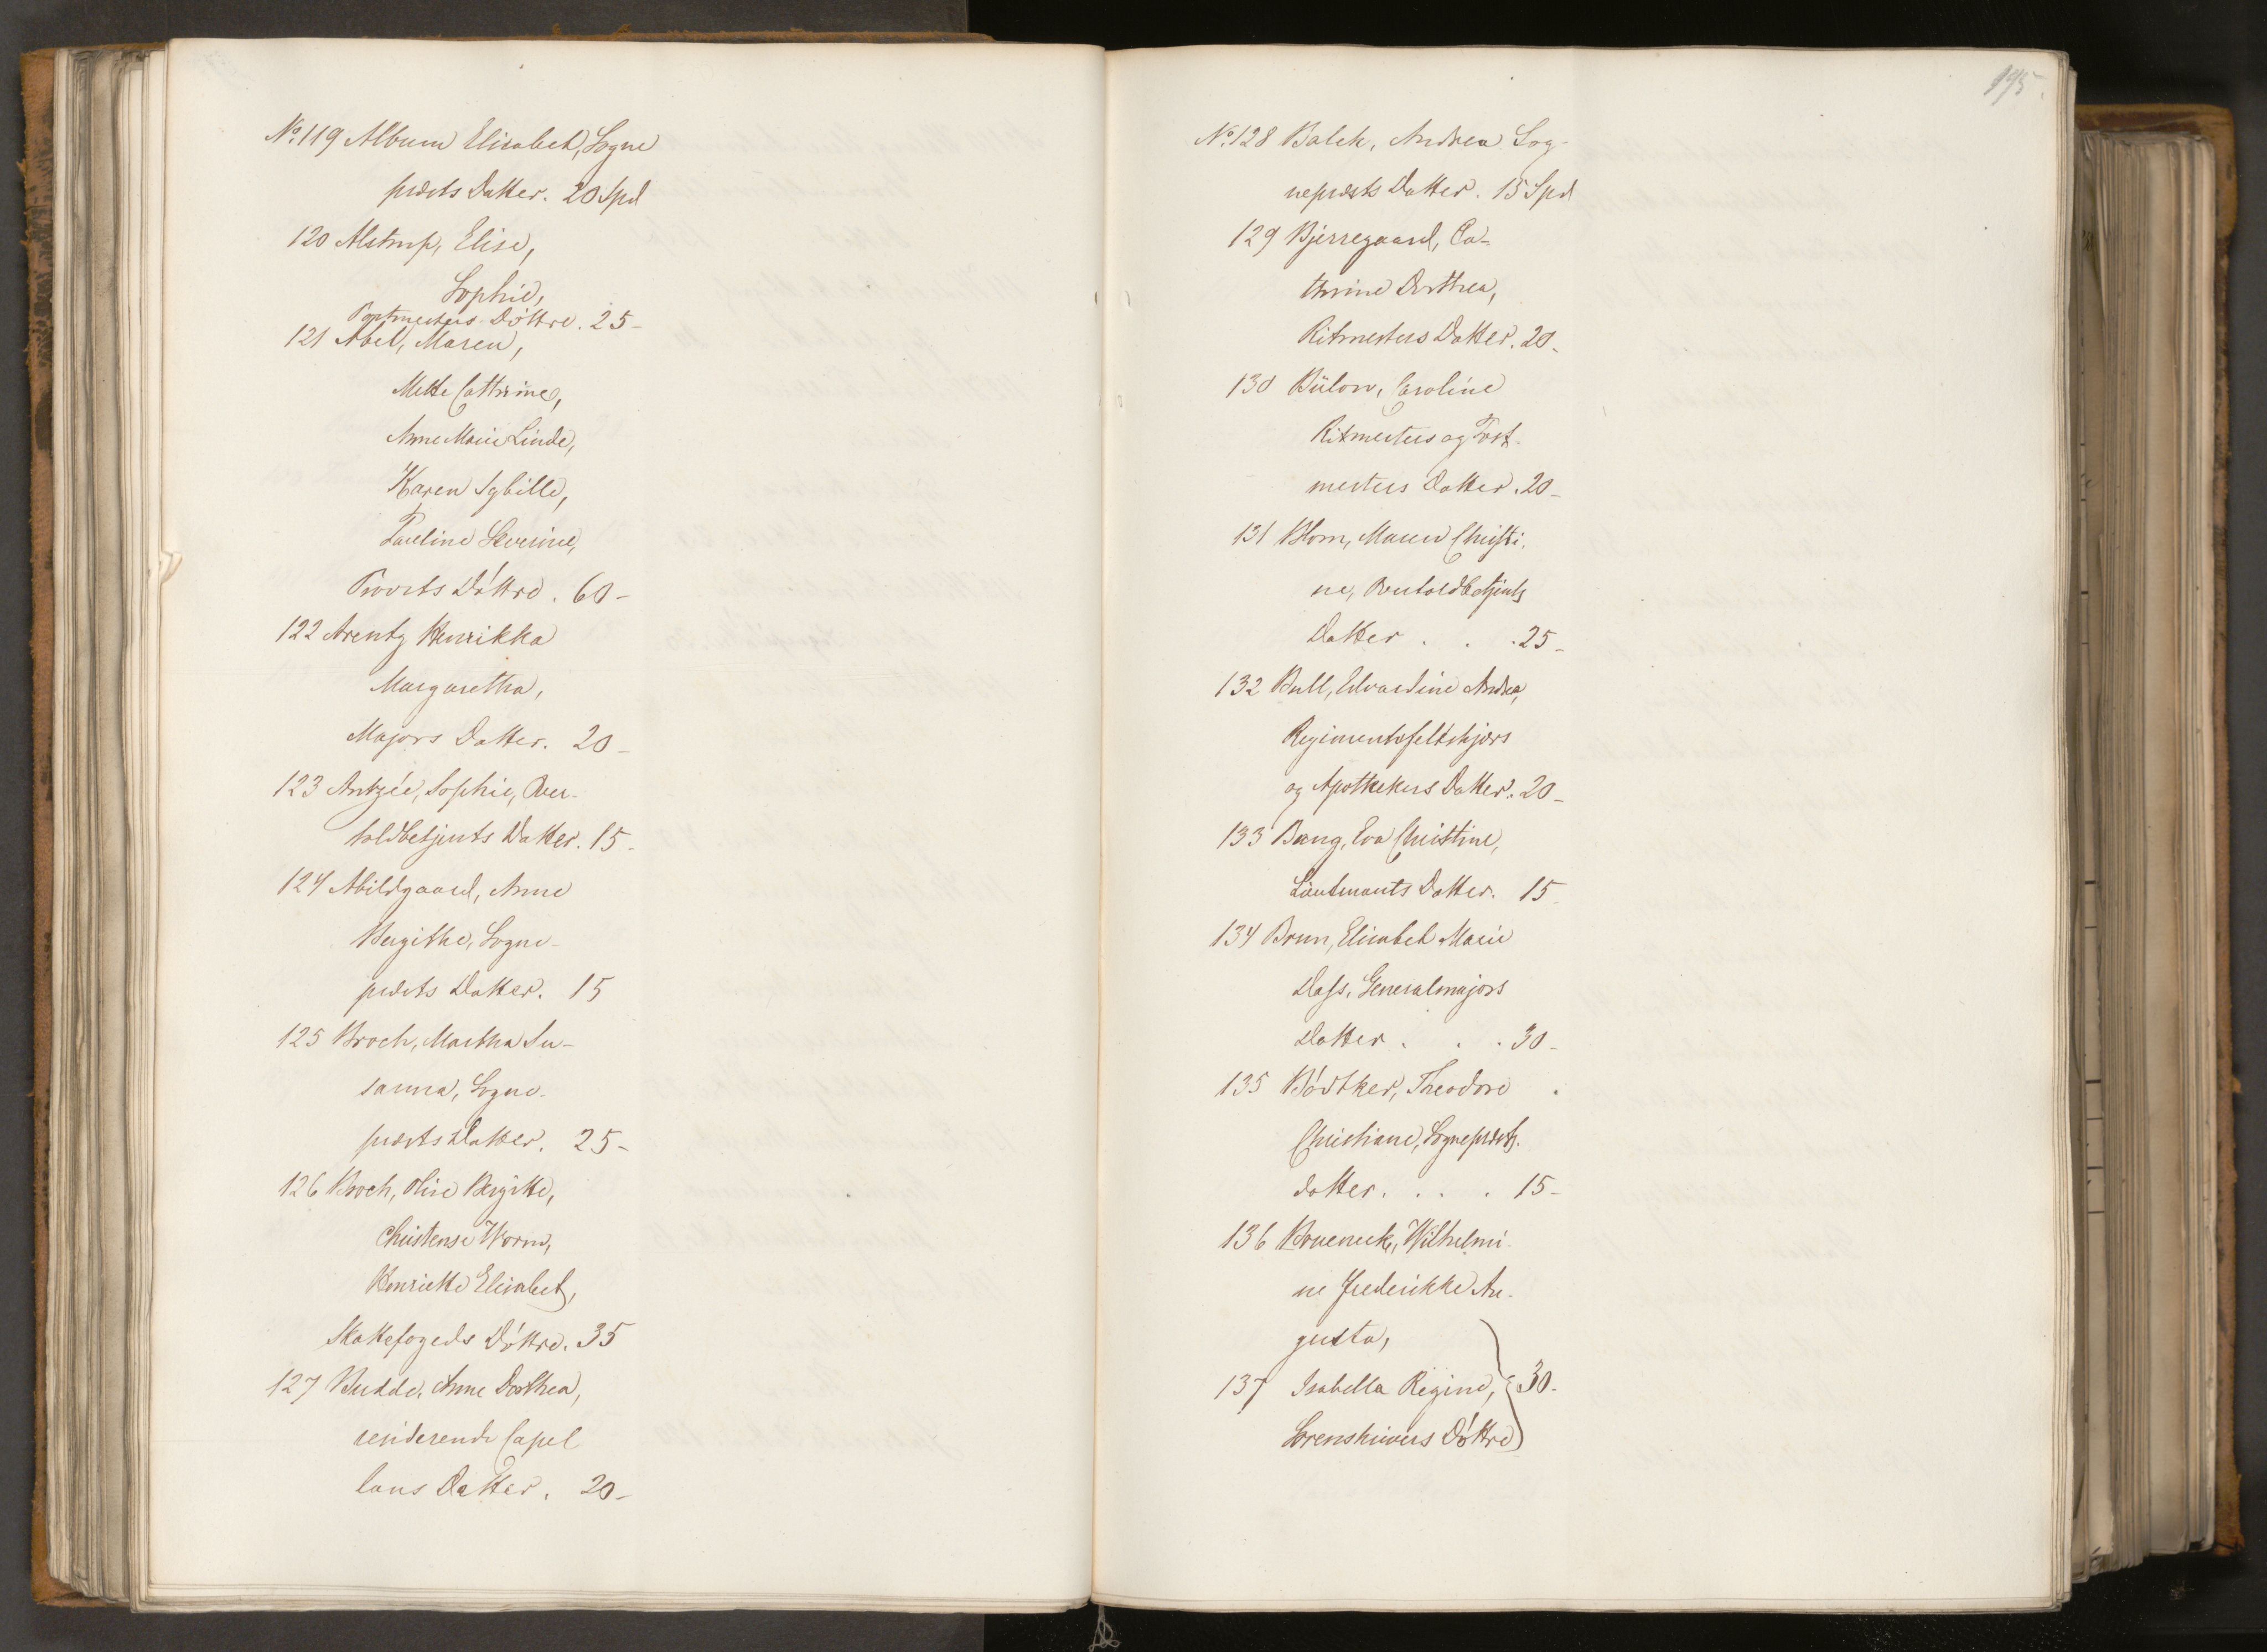 No. 119 Album Elisabet, Sogne
præsts Datter. 20 Spd
120 Alstrup, Elise,
Sophie,
Postmesters Döttre. 25-
121 Abel, Maren,
Mette Cathrine,
Anne Marie Linde,
Karen Sybille,
Pauline Severine,
Provsts Döttre. 60-
122 Arentz Henrikka
Margaretha,
Majors Datter. 20-
123 Antzée, Sophie, Over-
toldbetjents Datter. 15-
124 Abildgaard, Anne
Bergithe, Sogne-
præsts Datter. 15
125 Broch, Martha Su-
sanna, Sogne-
præsts Datter. 25-
126 Broch, Olise Bergitte,
Christense Worm,
Henriette Elisabet,
Skattefogeds Döttre. 35
127 Budde, Anne Dorthea,
residerende Capel
lans Datter. 20-
195.
No. 128 Balck, Andrea Sog-
nepræsts Datter. 15 Spd
129 Bjerregaard, Ca-
thrine Dorthea,
Ritmesters Datter. 20-
130 Bülow, Caroline
Ritmesters og Post-
mesters Datter. 20-
131 Blom, Maren Christi-
ne, Overtoldbetjents
Datter . . . 25-
132 Bull, Edvardine Andrea,
Regimentsfeltskjærs
og Apothekers Datter. 20-
133 Bang, Eva Christine,
Lieutnants Datter. 15-
134 Brun, Elisabet Marie
Dass, Generalmajors
Datter . . . 30-
135 Bödtker, Theodore
Christiane, Sognepræsts-
datter. . . . 15-
136 Bruenech, Wilhelmi-
ne Frederikke Au-
gusta,
137 Isabella Regine, 30-
Sorenskrivers Döttre